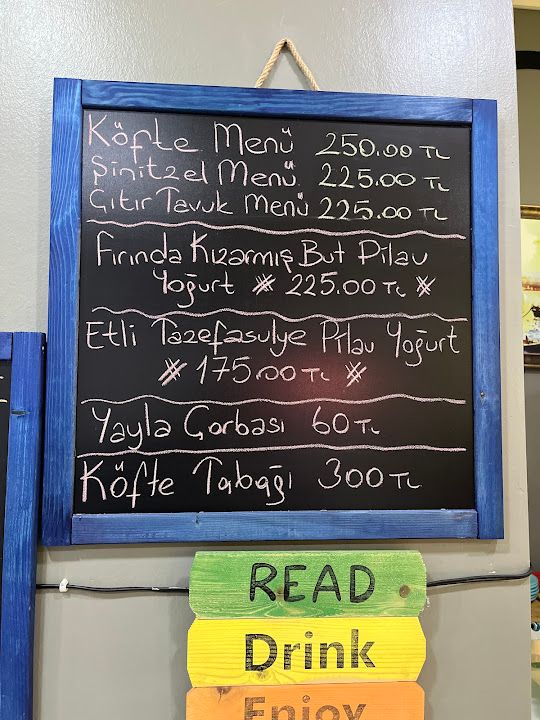 Köfte Menü 250.00 TL
Şinitzel Menü 225.00 TL
Çıtır Tavuk Menü 225.00 TL
Fırında Kızarmış But Pilav
Yoğurt * 225.00 TL *
Etli Tazefasulye Pilav Yoğurt
* 175.00 TL *
Yayla Çorbası 60 TL
Köfte Tabağı 300 TL
READ
Drink
Enjoy